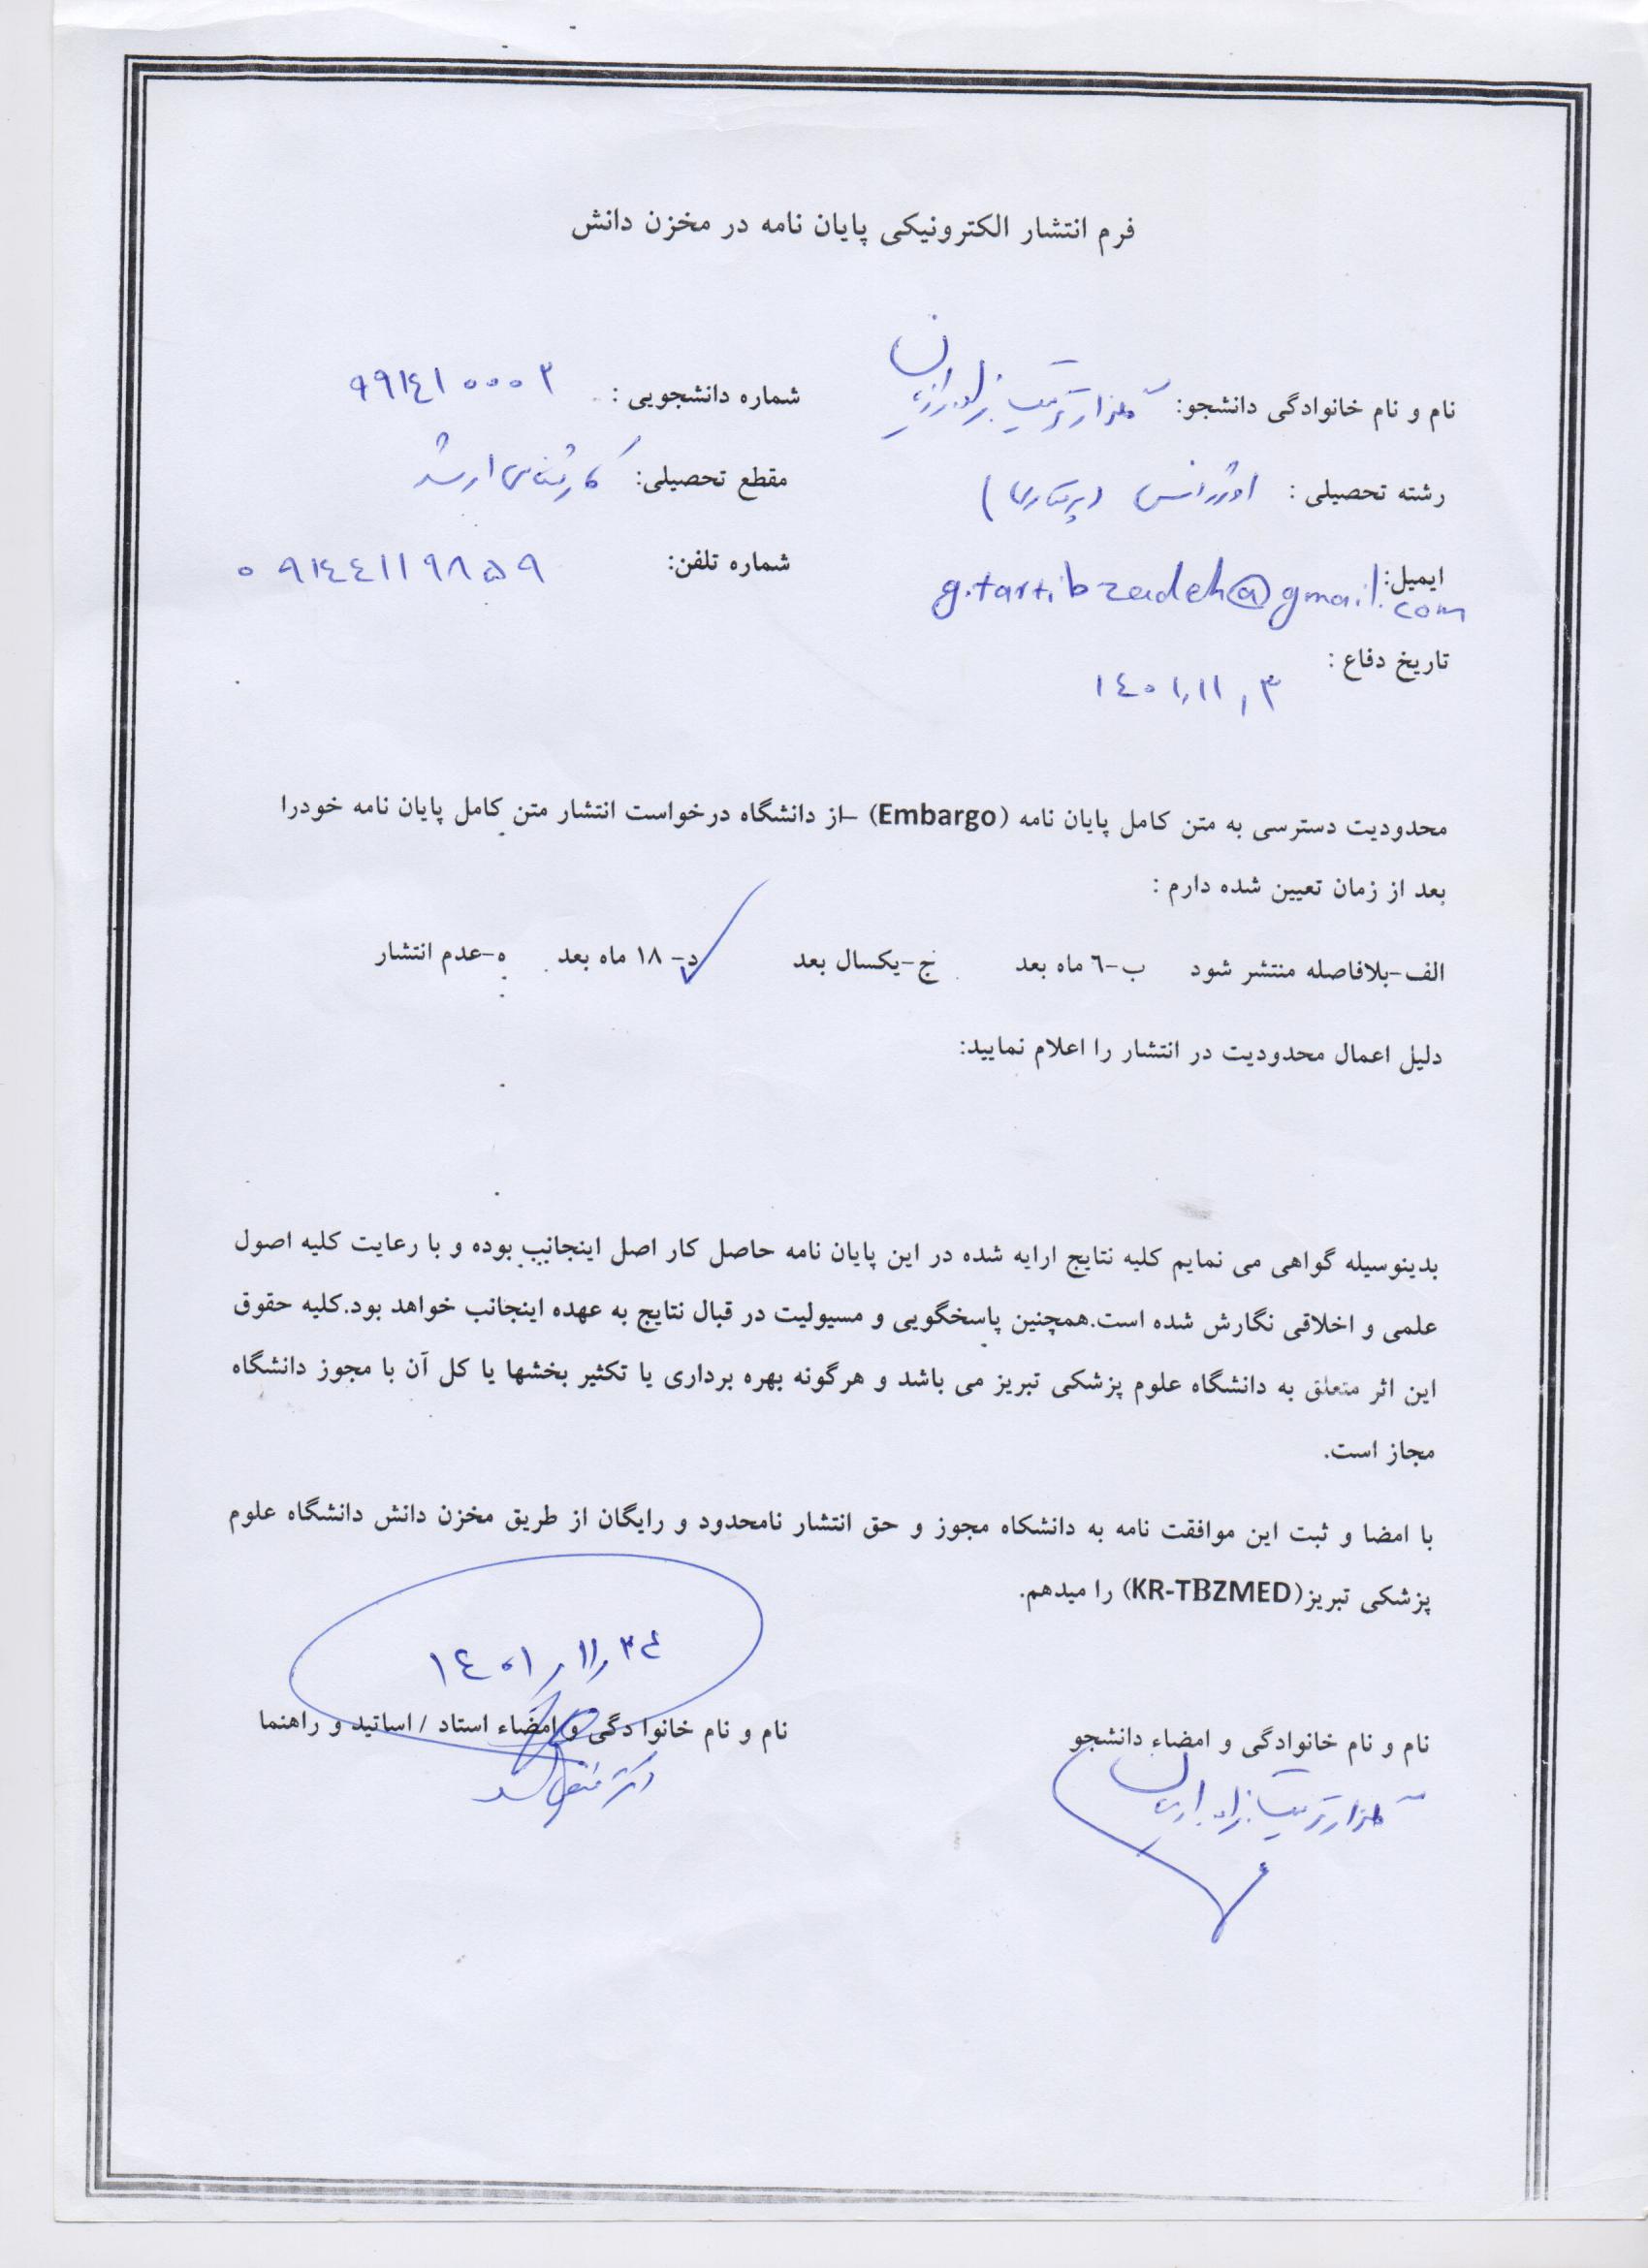 فرم انتشار الکترونیکی پایان نامه در مخزن دانش
نام و نام خانوادگی دانشجو: گلزار ترتیب زاد
شماره دانشجویی : ۹۹۱۴۱۰۰۰۲
رشته تحصیلی : اورژانس (پرستاری)
مقطع تحصیلی: کارشناسی ارشد
ایمیل: g.tartibzadeh@gmail.com
شماره تلفن: ۰۹۱۴۴۱۱۹۸۵۹
تاریخ دفاع :
۱۴۰۱،۱۱،۳
محدودیت دسترسی به متن کامل پایان نامه (Embargo) –از دانشگاه درخواست انتشار متن کامل پایان نامه خودرا
بعد از زمان تعیین شده دارم :
الف-بلافاصله منتشر شود ب-٦ ماه بعد ج-یکسال بعد د- ۱۸ ماه بعد ه-عدم انتشار
دلیل اعمال محدودیت در انتشار را اعلام نمایید:
بدینوسیله گواهی می نمایم کلیه نتایج ارایه شده در این پایان نامه حاصل کار اصل اینجانب بوده و با رعایت کلیه اصول
علمی و اخلاقی نگارش شده است.همچنین پاسخگویی و مسیولیت در قبال نتایج به عهده اینجانب خواهد بود.کلیه حقوق
این اثر متعلق به دانشگاه علوم پزشکی تبریز می باشد و هرگونه بهره برداری یا تکثیر بخشها یا کل آن با مجوز دانشگاه
مجاز است.
با امضا و ثبت این موافقت نامه به دانشکاه مجوز و حق انتشار نامحدود و رایگان از طریق مخزن دانش دانشگاه علوم
پزشکی تبریز(KR-TBZMED) را میدهم.
نام و نام خانوادگی و امضاء دانشجو
گلزار ترتیب زاد
نام و نام خانوادگی و امضاء استاد / اساتید و راهنما
دکتر